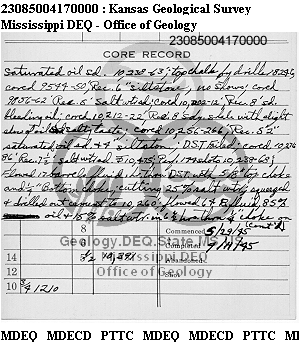 23085004170000 : Kansas Geological Survey
Mississippi DEQ - Office of Geology
23085004170000
CORE RECORD
Saturated oil sd. 10,230-63; top chalk by driller 1829;
cored 9544-50, Rec. 6" siltstone, no shows; cored
9856-62 Rec. 6' Salt ; cored 10,202-12' Rec. 8' sd.
bleeding oil; cored 10,212-22 Rec. 8' Sdy. shale with slight
show of salty taste; cored 10,256-266, Rec. 5½'
saturated oil sd. 4½' siltstone; DST failed; cored 10,276
86' Rec. 7½' 10,475; Perf. 174 shots 10,238-63;
flowed 12 barrels fluid hot on DST with 5/8" top choke
and ¼" bottom choke; cutting 25% salt wtr; squeezed
& drilled out cement to 10,260' flowed 64 B. fluid, 85%
oil & 15% salt wtr in 6½ hrs. thru ¼" choke on
(cont'd)
Geology.DEQ.State.MS.US
Mississippi.DEQ
Office of Geology
8
Commenced 5/29/45
9
Completed
14
3½ 10,391
Abandoned
12
Shot
10 ¾ 1210
MDEQ MDECD PTTC MDEQ MDECD PTTC MI